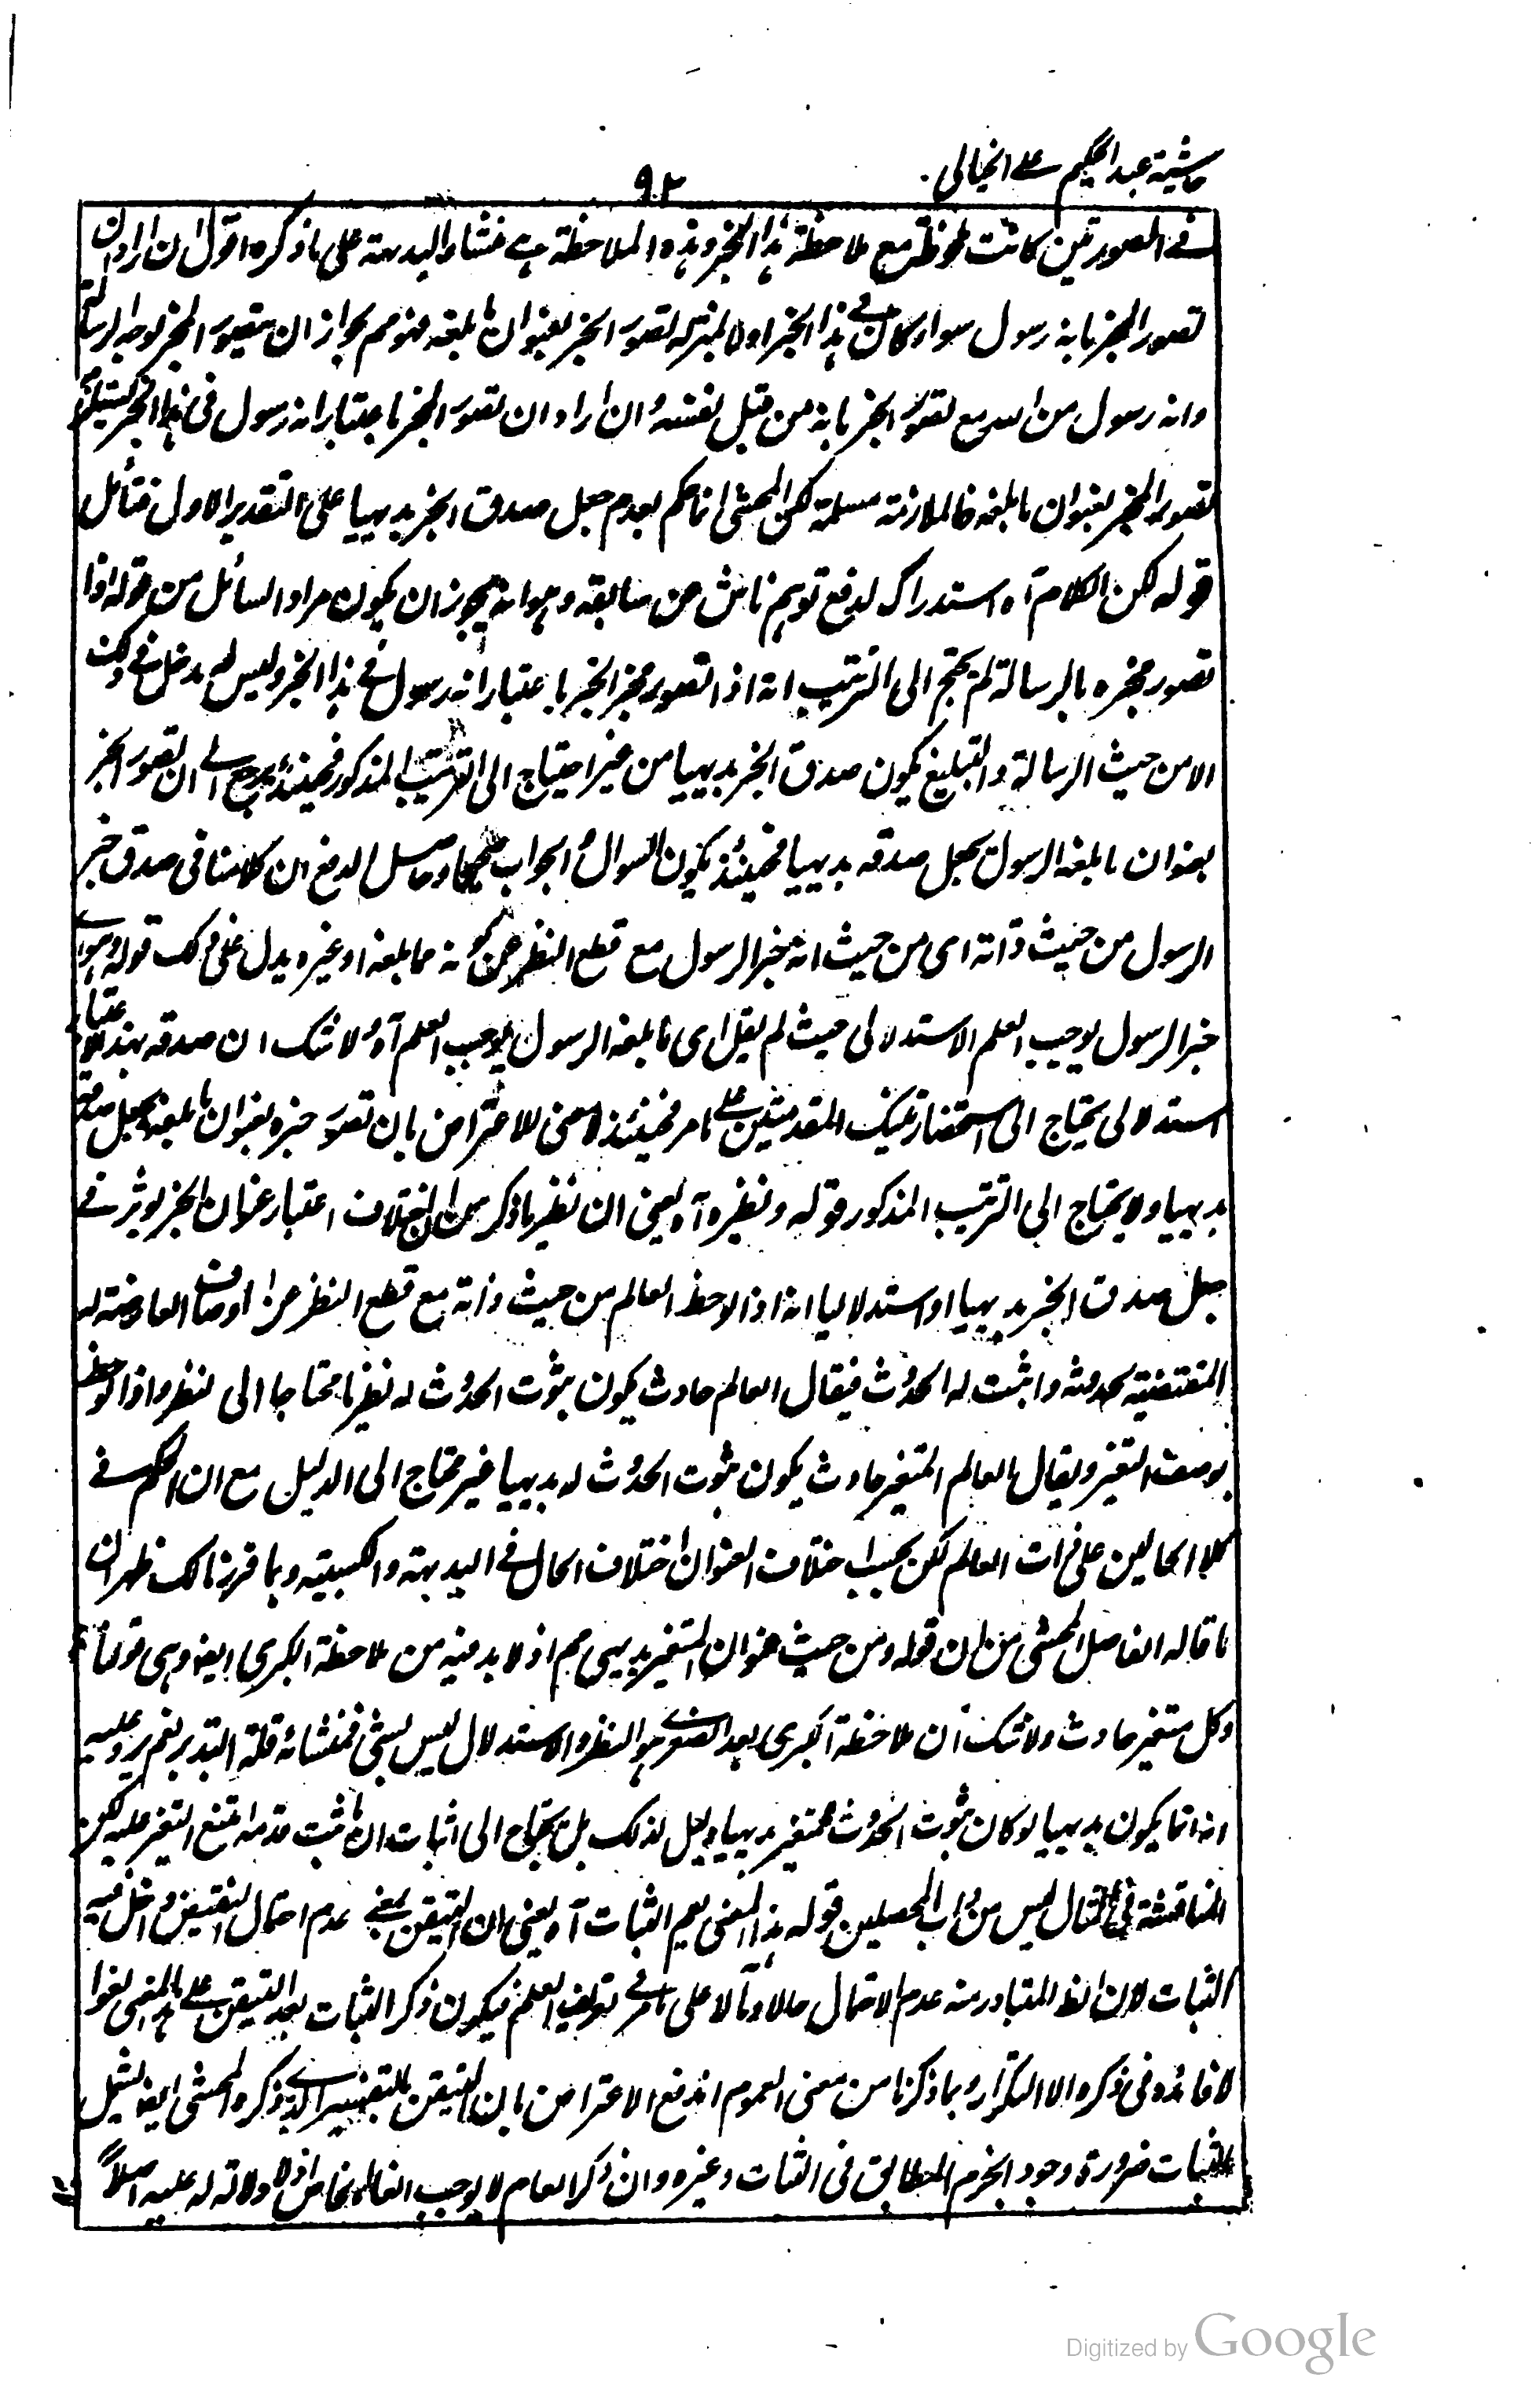 حاشية عبد الحكيم على الخيالى
٩٢
فى الصورتين كانت ملحوظة مع ملاحظة هذا الخبر وهذه الملاحظة هى منشاء البديهة على ما ذكره اقول ان اراد ان
تصور المخبر بانه رسول سواء كان فى هذا الخبر اولا بمنزلة تصور الخبر بعنوان ما بلغه فهو مم بجواز ان يتصور المخبر بوجه الرسالة
وانه رسول من الله مع تصور الخبر بانه من قبل نفسه وان اراد ان تصور المخبر باعتبار انه رسول فى هذا الخبر يستلزم
تصور الخبر بعنوان ما بلغه فالملازمة مسلمة لكن المحشى انما حكم بعدم جعل صدق الخبر بديهيا على التقدير الاول فتأمل
قوله لكن الكلام آه استدراك لدفع توهم ناش من سابقه وهو انه يجوز ان يكون مراد السائل من قوله اذا
تصور مخبره بالرسالة لم يحتج الى الترتيب انه اذا تصور مخبر الخبر باعتبار انه رسول فى هذا الخبر وليس له مدخل فى ذلك
الا من حيث الرسالة والتبليغ يكون صدق الخبر بديهيا من غير احتياج الى الترتيب المذكور فحينئذ يرجع الى ان تصور الخبر
بعنوان ما بلغه الرسول يجعل صدقه بديهيا فحينئذ يكون السوال والجواب صحيحا وحاصل الدفع ان كلامنا فى صدق خبر
الرسول من حيث ذاته اى من حيث انه خبر الرسول مع قطع النظر عن كونه مما بلغه او غيره يدل على ذلك قوله وهو اى
خبر الرسول يوجب العلم الاستدلالى حيث لم يقل اى ما بلغه الرسول يوجب العلم آه ولا شك ان صدقه بهذا الاعتبار
استدلالى يحتاج الى استحضار تينك المقدمتين على ما مر فحينئذ لا معنى للاعتراض بان تصور خبره بعنوان ما بلغه يجعل صدقه
بديهيا ولا يحتاج الى الترتيب المذكور قوله ونظيره آه يعنى ان نظير ما ذكر من ان اختلاف اعتبار عنوان الخبر يوثر فى
جعل صدق الخبر بديهيا او استدلاليا انه اذا لوحظ العالم من حيث ذاته مع قطع النظر عن اوصاف العارضة له
المقتضية لحدوثه واثبت له الحدوث فيقال العالم حادث يكون ثبوت الحدوث له نظريا محتاجا الى لنظر واذا لوحظ
بوصف التغير ويقال العالم المتغير حادث يكون ثبوت الحدوث له بديهيا غير محتاج الى الدليل مع ان الحكم فى
كلا الحالين على ذات العالم لكن بحسب اختلاف العنوان اختلاف الحال فى البديهة والكسبية وبما قررنا لك ظهر ان
ما قاله الفاضل المحشى من ان قوله ومن حيث عنوان المتغير بديهى مم اذ لا بد فيه من ملاحظة الكبرى ايضا وهى قولنا
وكل متغير حادث ولا شك ان ملاحظة الكبرى بعد الصغرى هو النظر والاستدلال ليس بشئ فمنشائه قلة التدبر نعم يرد عليه
انه انما يكون بديهيا لو كان ثبوت الحدوث للمتغير بديهيا وليس لذلك بل يحتاج الى اثبات ان ما ثبت قدمه امتنع التغير عليه لكن
المناقشة فى المثال ليس من داب المحصلين قوله هذا المعنى يعم الثبات آه يعنى ان التيقن بمعنى عدم احتمال النقيض داخل فيه
الثبات لان الظ المتبادر منه عدم الاحتمال حالا ومآلا على ما مر فى تعريف العلم فيكون ذكر الثبات بعد التيقن على هذا المعنى لغوا
لا فائدة فى ذكره الا التكرار وبما ذكرنا من معنى العموم اندفع الاعتراض بان التيقن بالتفسير الذى ذكره المحشى ايضا يشمل
الثبات ضرورة وجود الجزم المطابق فى الثبات وغيره وان ذكر العام لا يوجب الغاء الخاص اذ لا دلالة له عليه اصلاً